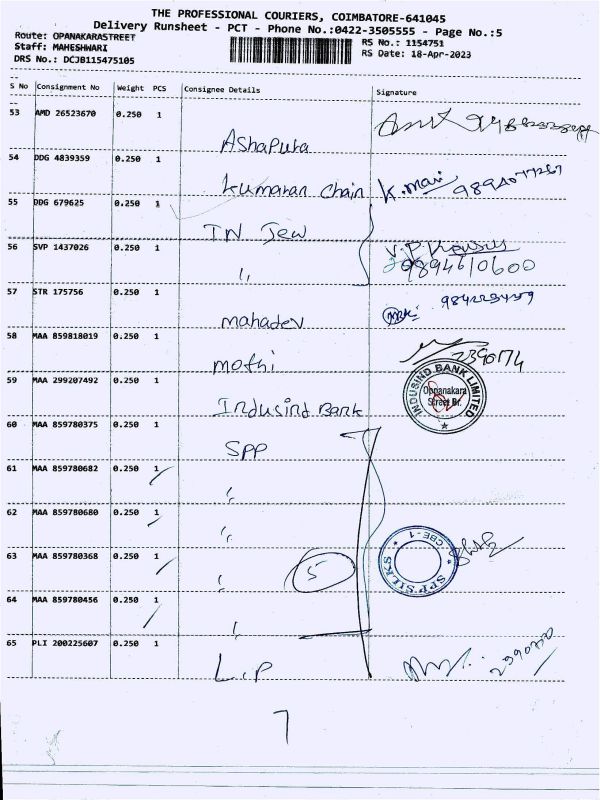 THE PROFESSIONAL COURIERS, COIMBATORE-641045
Delivery Runsheet - PCT - Phone No.:0422-3505555 - Page No.:5
Route: OPANAKARASTREET
RS No.: 1154751
Staff: MAHESHWARI
RS Date: 18-Apr-2023
DRS No.: DCJB115475105
S No Consignment No Weight PCS Consignee Details Signature
53 AMD 26523670 0.250 1 Ashapura
54 DDG 4839359 0.250 1 Kumaran Chain K. Mari
55 DDG 679625 0.250 1 TN Jew
56 SVP 1437026 0.250 1 " 9894610600
57 STR 175756 0.250 1 mahadev
58 MAA 859818019 0.250 1 mothi 2390174
59 MAA 299207492 0.250 1 Indusind Bank INDUSIND BANK LIMITED Oppanakara Street Br.
60 MAA 859780375 0.250 1 SPP
61 MAA 859780682 0.250 1 "
62 MAA 859780680 0.250 1 "
63 MAA 859780368 0.250 1 " 5 SPP SILKS CBE-1
64 MAA 859780456 0.250 1 "
65 PLI 200225607 0.250 1 L.P
7